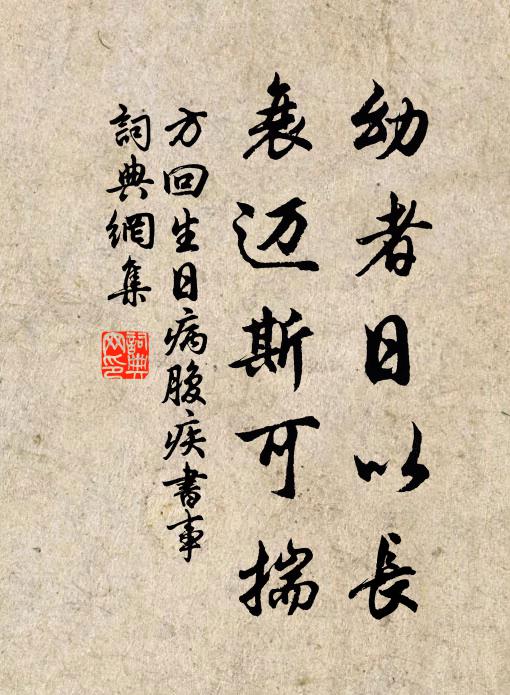 幼者日以長
衰迈斯可揣
方回生日病腹疾書事
詞典網集
詞典网印